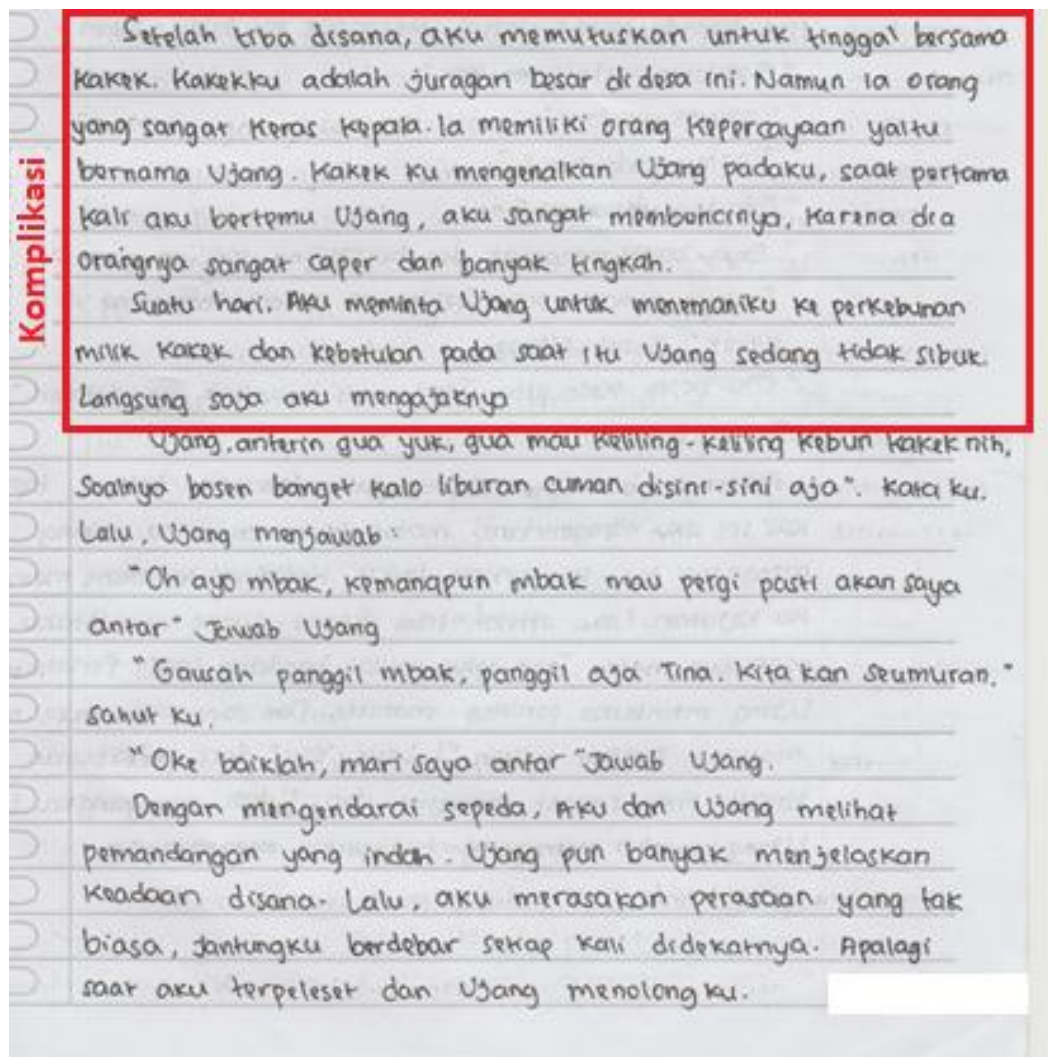 Komplikasi
Setelah tiba disana, aku memutuskan untuk tinggal bersama
kakek. Kakekku adalah juragan besar di desa ini. Namun ia orang
yang sangat keras kepala. Ia memiliki orang kepercayaan yaitu
bernama Ujang. Kakek ku mengenalkan Ujang padaku, saat pertama
kali aku bertemu Ujang, aku sangat membencinya, karena dia
orangnya sangat caper dan banyak tingkah.
Suatu hari. Aku meminta Ujang untuk menemaniku ke perkebunan
milik kakek dan kebetulan pada saat itu Ujang sedang tidak sibuk.
Langsung saja aku mengajaknya
"Ujang, anterin gua yuk, gua mau keliling-keliling kebun kakek nih,
Soalnya bosen banget kalo liburan cuman disini-sini aja". Kata ku.
Lalu, Ujang menjawab
"Oh ayo mbak, kemanapun mbak mau pergi pasti akan saya
antar" Jawab Ujang
"Gausah panggil mbak, panggil aja Tina. Kita kan seumuran."
sahut ku.
"Oke baiklah, mari saya antar" Jawab Ujang.
Dengan mengendarai sepeda, Aku dan Ujang melihat
pemandangan yang indah. Ujang pun banyak menjelaskan
keadaan disana. Lalu, aku merasakan perasaan yang tak
biasa, jantungku berdebar setiap kali didekatnya. Apalagi
saat aku terpeleset dan Ujang menolong ku.